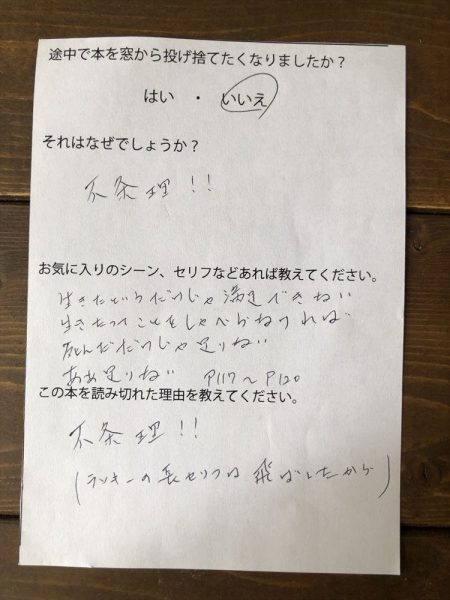 途中で本を窓から投げ捨てたくなりましたか？
はい ・ いいえ
それはなぜでしょうか？
不条理!!
お気に入りのシーン、セリフなどあれば教えてください。
生きたというだけじゃ満足できない
生きたってことをしゃべらなければ
死んだだけじゃ足りない
ああ足りない P117〜P120
この本を読み切れた理由を教えてください。
不条理!!
(ラッキーの長セリフは飛ばしたから)